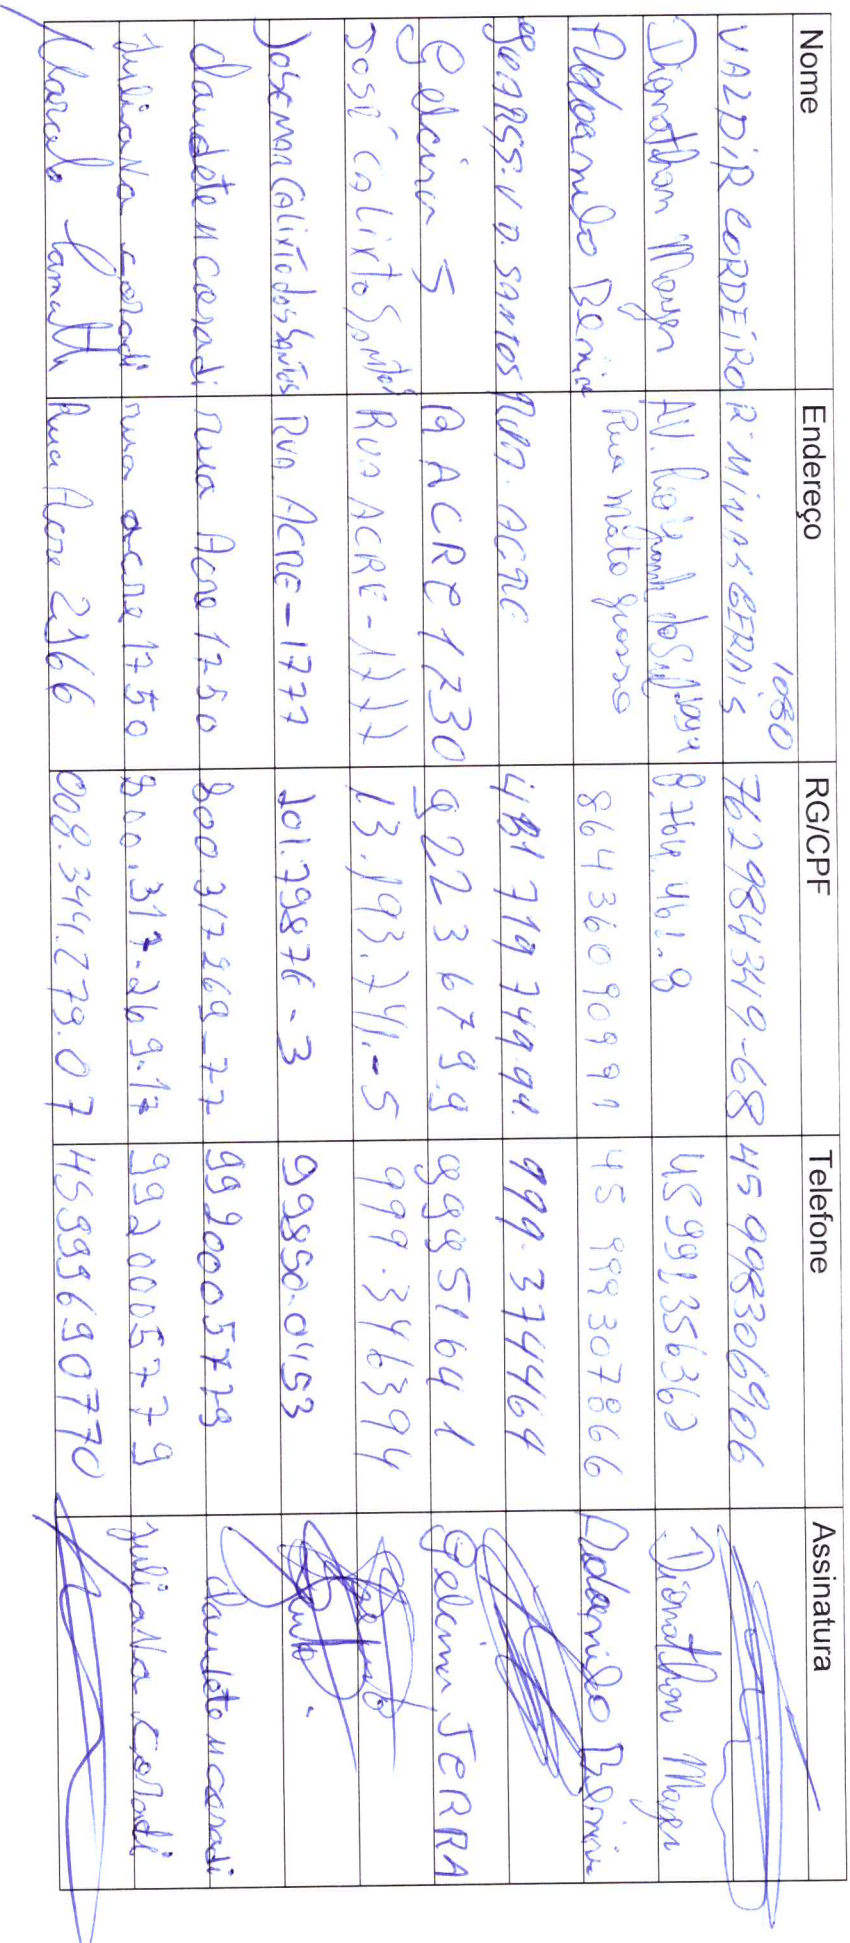 Nome Endereço RG/CPF Telefone Assinatura
VALDIR CORDEIRO R MINAS GERAIS 1080 762984349-68 45 998306906
Dionathan Mayer AV. Rio grande do Sul 8.764.461.8 45 991356362 Dionathan Mayer
Adoanildo Rua Mato grosso 86436090991 45 999307866
V.D. SANTOS RUA. ACRE 481 719 749 94. 999.374464
Gelcira S R ACRE 1730 9223679.9 99951641 gelcira SERRA
JOSÉ CALIXTO SANTOS RUA ACRE - 1777 13.193.741.-5 999.346394
JOSEMAR CALIXTO dos SANTOS RUA ACRE - 1777 101.79876-3 99850.0453
claudete n coradi rua Acre 1750 800.317269-77 992005779 claudete n coradi
juliana coradi rua acre 1750 800.317.269.17 992005779 juliana coradi
Rua Acre 2366 008.344.279.07 45999690770